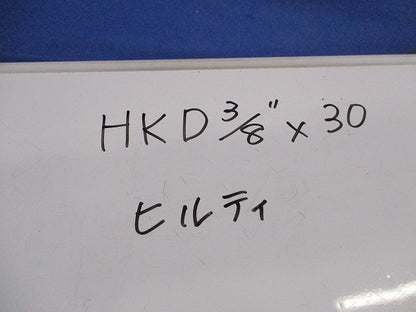 HKD 3/8" x 30
ヒルティ